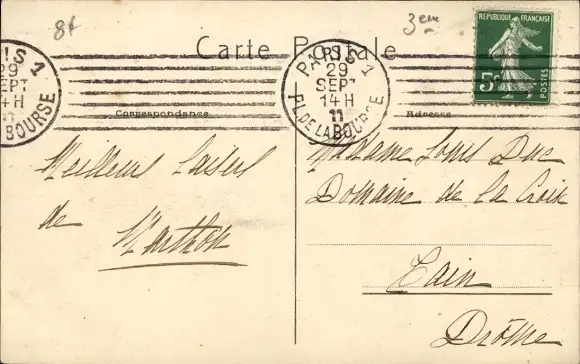 8f
3em
Carte Postale
RÉPUBLIQUE FRANÇAISE
5c
POSTES
PARIS 1
29
SEPT
14H
11
PL. DE LA BOURSE
IS 1
29
SEPT
4H
BOURSE
Correspondance
Adresse
Meilleurs baisers
de
Marthon
Madame Louis Duc
Domaine de La Croix
Tain
Drôme